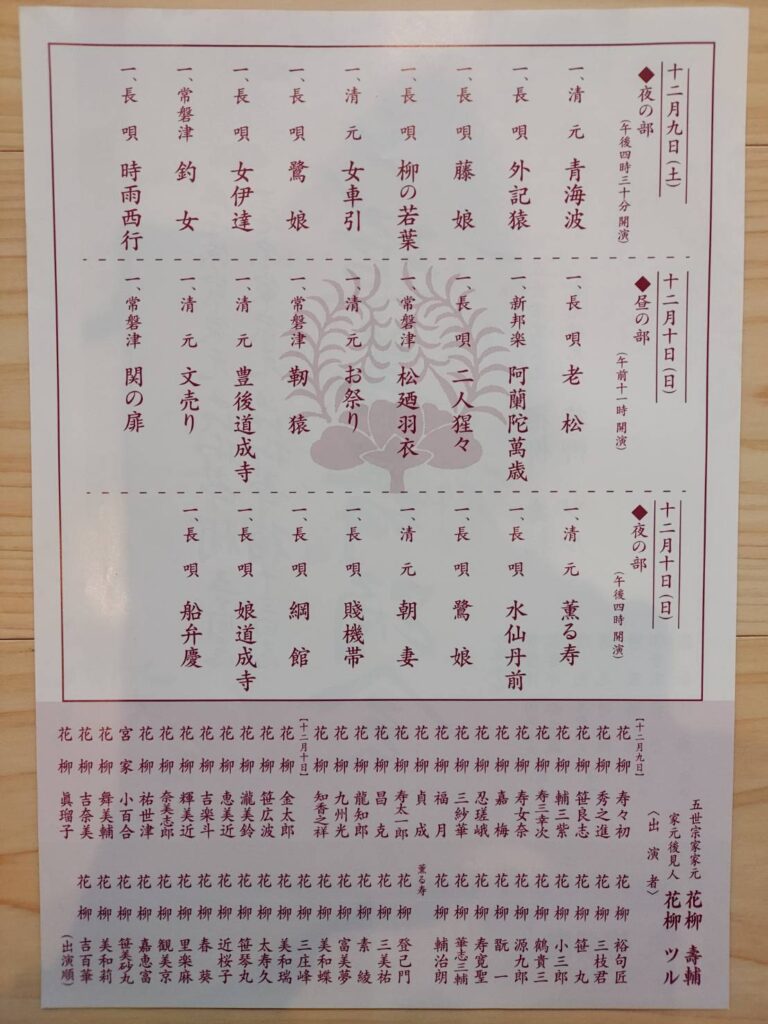 十二月九日（土）
◆夜の部
（午後四時三十分 開演）
一、清元 青海波
一、長唄 外記猿
一、長唄 藤娘
一、長唄 柳の若葉
一、清元 女車引
一、長唄 鷺娘
一、長唄 女伊達
一、常磐津 釣女
一、長唄 時雨西行
十二月十日（日）
◆昼の部
（午前十一時 開演）
一、長唄 老松
一、新邦楽 阿蘭陀萬歳
一、長唄 二人猩々
一、常磐津 松廼羽衣
一、清元 お祭り
一、常磐津 靭猿
一、清元 豊後道成寺
一、清元 文売り
一、常磐津 関の扉
十二月十日（日）
◆夜の部
（午後四時 開演）
一、清元 薫る寿
一、長唄 水仙丹前
一、長唄 鷺娘
一、清元 朝妻
一、長唄 賤機帯
一、長唄 綱館
一、長唄 娘道成寺
一、長唄 船弁慶
五世宗家家元 花柳 壽輔
家元後見人 花柳 ツル
〈出演者〉
【十二月九日】
花柳 寿々初
花柳 秀之進
花柳 笹良志
花柳 輔三紫
花柳 寿三幸次
花柳 寿女奈
花柳 嘉梅
花柳 忍瑳峨
花柳 三紗華
花柳 福月
花柳 貞成
花柳 寿太一郎
花柳 昌克
花柳 龍知郎
花柳 九州光
花柳 知香之祥
【十二月十日】
花柳 金太郎
花柳 笹広波
花柳 瀧美鈴
花柳 恵美近
花柳 吉楽斗
花柳 輝美近
花柳 奈美志郎
花柳 祐世津
宮家 小百合
花柳 舞美輔
花柳 吉奈美
花柳 眞瑠子
花柳 裕句匠
花柳 三枝君
花柳 笹丸
花柳 小三郎
花柳 鶴貴三
花柳 源九郎
花柳 翫一
花柳 寿寛聖
花柳 華志三輔
花柳 輔治朗
薫る寿
花柳 登己門
花柳 三美祐
花柳 素綾
花柳 富美夢
花柳 美和蝶
花柳 三庄峰
花柳 美和瑞
花柳 太寿久
花柳 笹琴丸
花柳 近桜子
花柳 春葵
花柳 里楽麻
花柳 観美京
花柳 嘉恵富
花柳 笹美砂丸
花柳 美和莉
花柳 吉百華
（出演順）